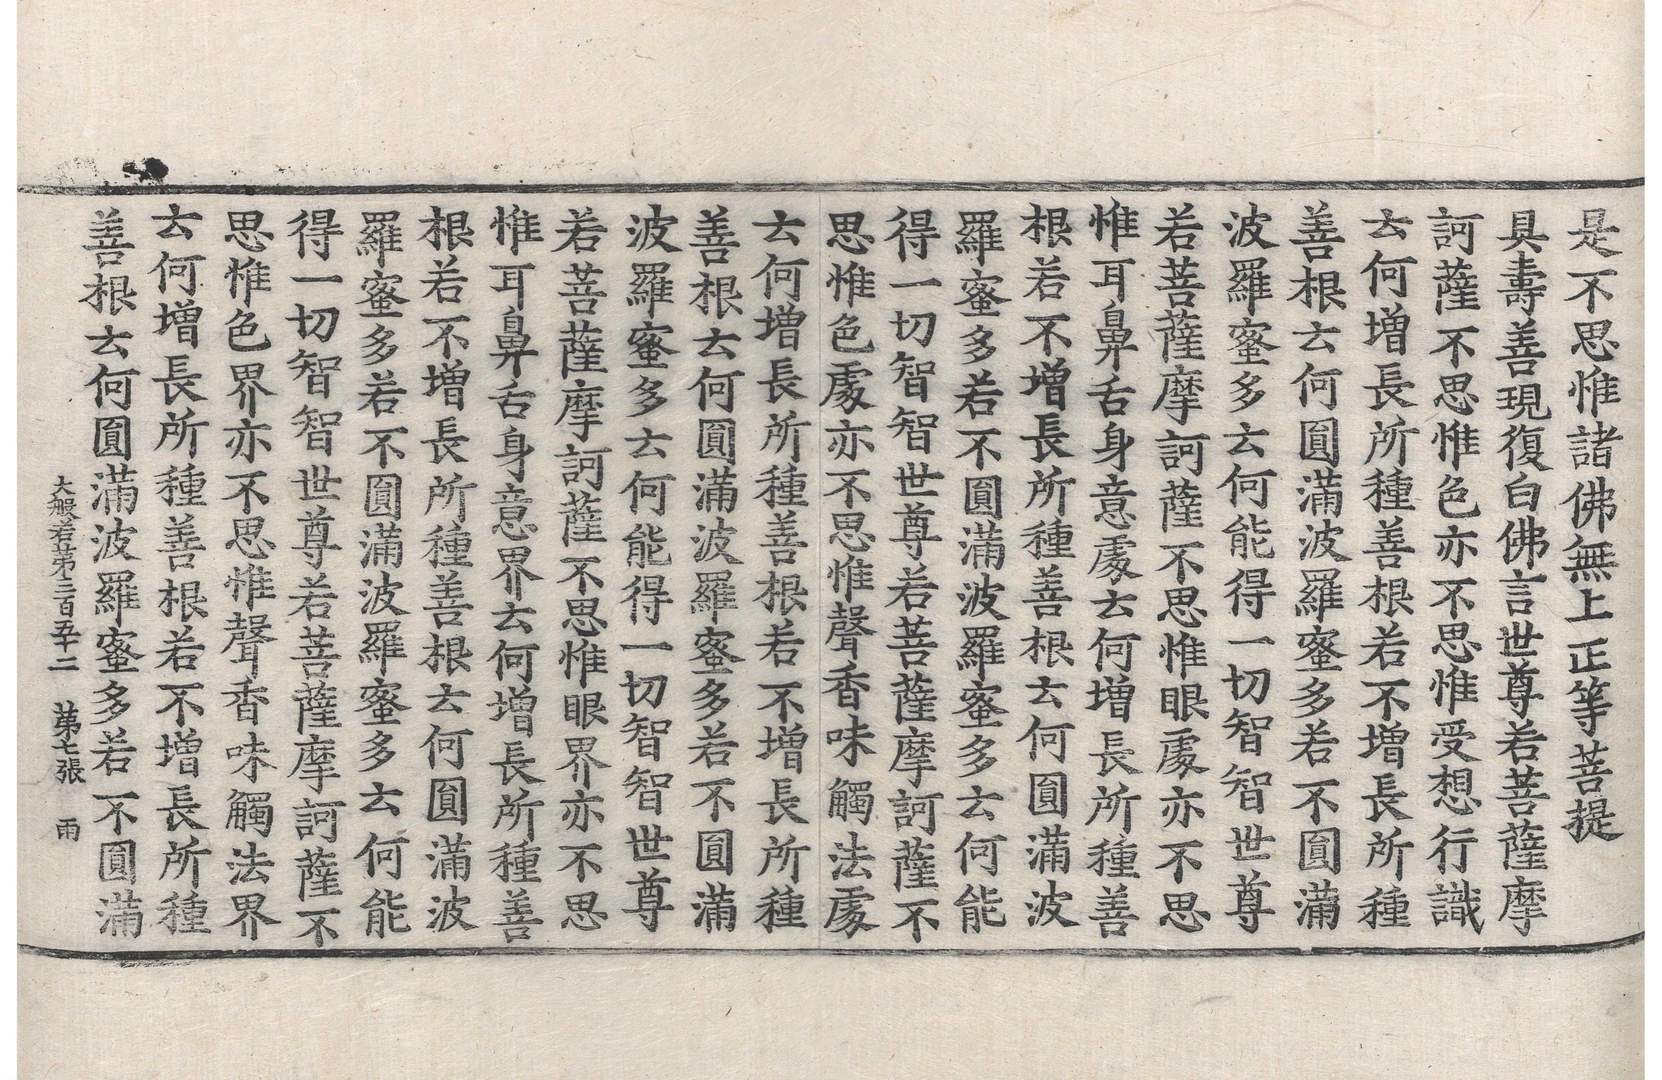 是不思惟諸佛無上正等菩提
具壽善現復白佛言世尊若菩薩摩
訶薩不思惟色亦不思惟受想行識
云何增長所種善根若不增長所種
善根云何圓滿波羅蜜多若不圓滿
波羅蜜多云何能得一切智智世尊
若菩薩摩訶薩不思惟眼處亦不思
惟耳鼻舌身意處云何增長所種善
根若不增長所種善根云何圓滿波
羅蜜多若不圓滿波羅蜜多云何能
得一切智智世尊若菩薩摩訶薩不
思惟色處亦不思惟聲香味觸法處
云何增長所種善根若不增長所種
善根云何圓滿波羅蜜多若不圓滿
波羅蜜多云何能得一切智智世尊
若菩薩摩訶薩不思惟眼界亦不思
惟耳鼻舌身意界云何增長所種善
根若不增長所種善根云何圓滿波
羅蜜多若不圓滿波羅蜜多云何能
得一切智智世尊若菩薩摩訶薩不
思惟色界亦不思惟聲香味觸法界
云何增長所種善根若不增長所種
善根云何圓滿波羅蜜多若不圓滿
大般若第三百五十二 第七張 雨